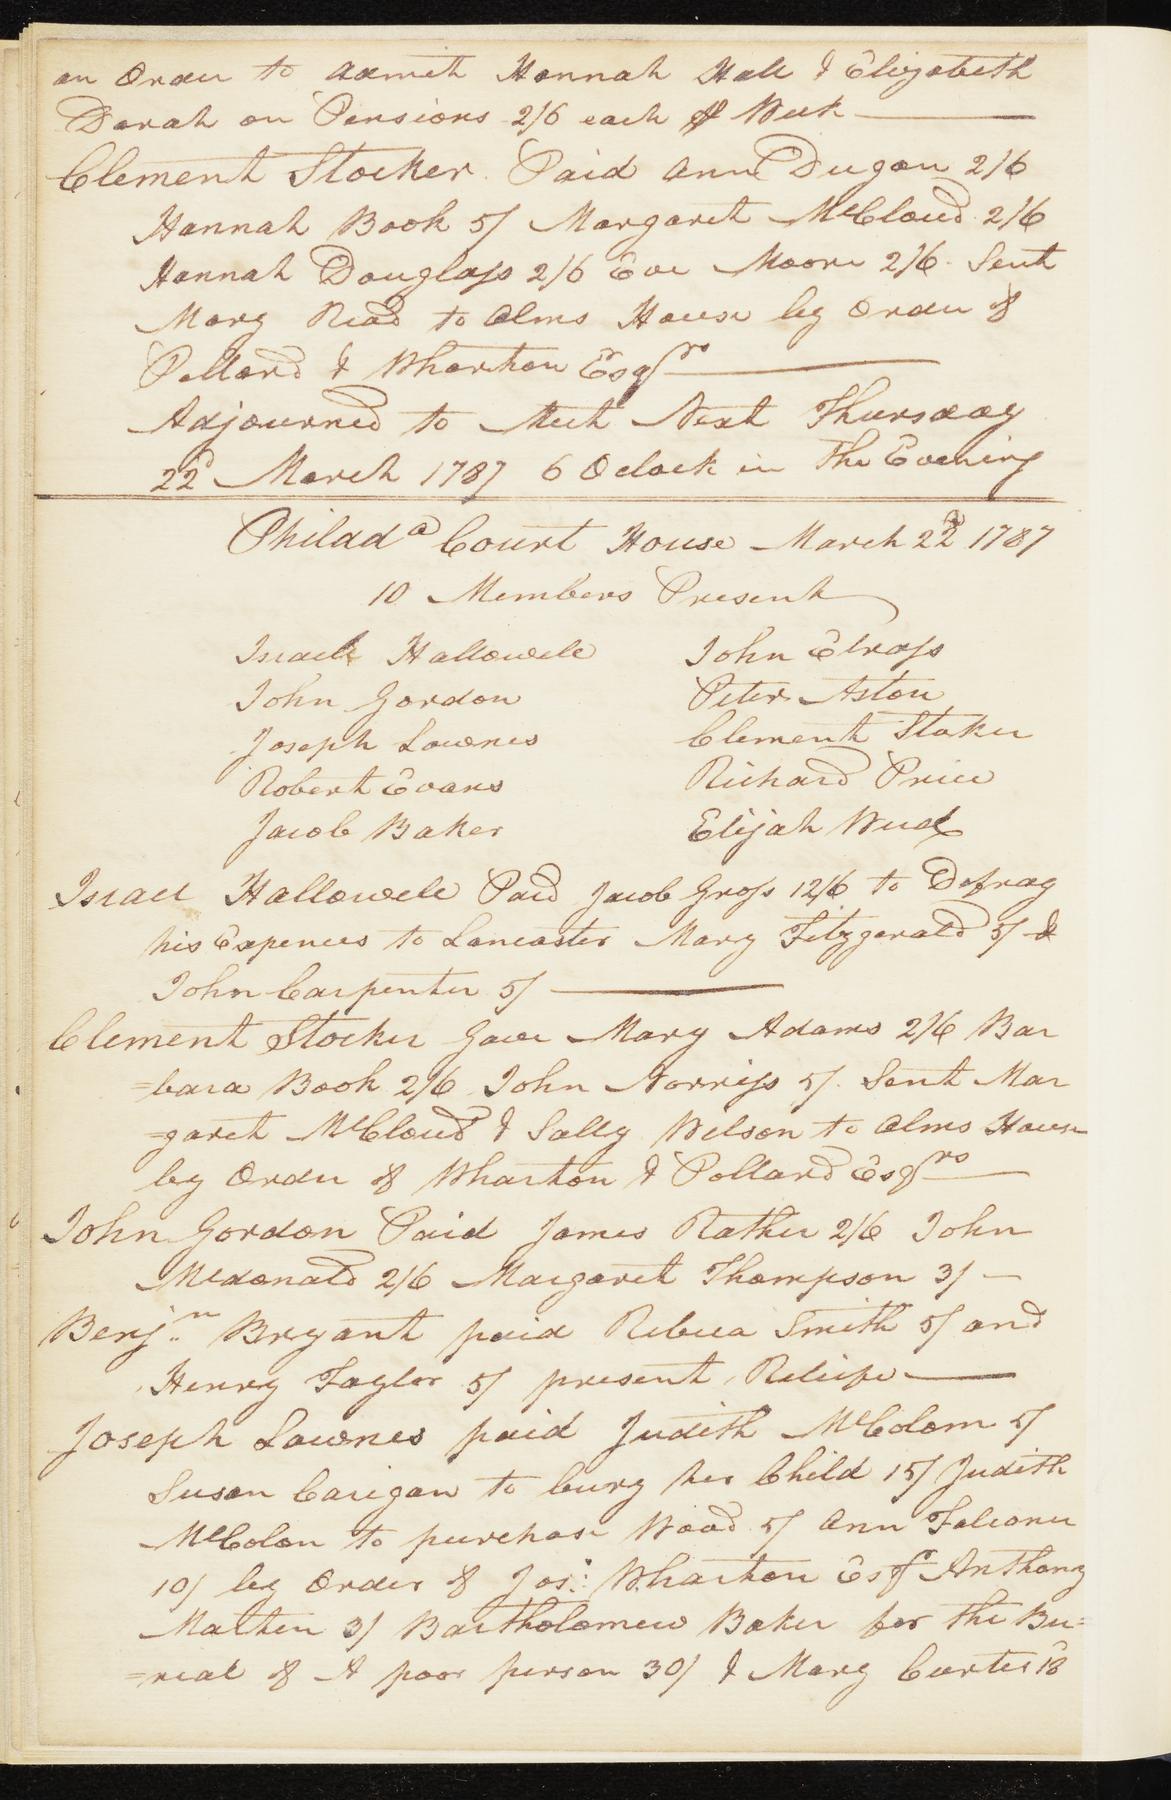 an Order to admit Hannah Hall & Elizabeth
Darah on Pensions 2/6 each ⅌ Week
Clement Stocker Paid Ann Dugan 2/6
Hannah Book 5/ Margaret McCloud 2/6
Hannah Douglass 2/6 Eve Moore 2/6 Sent
Mary Read to Alms House by Order of
Pollard & Wharton Esqrs
Adjourned to Meet Next Thursday
22d March 1787 6 O Clock in The Evening
Philada Court House March 22d 1787
10 Members Present
Israel Hallowell John Elrass
John Gordon Peter Aston
Joseph Lownes Clement Stoker
Robert Evans Richard Price
Jacob Baker Elijah Weed
Israel Hallowell Paid Jacob Gross 12/6 to Defray
his Expences to Lancaster Mary Fitzgerald 5/ &
John Carpenter 5/
Clement Stocker Gave Mary Adams 2/6 Bar
=bara Book 2/6 John Norriss 5/. Sent Mar
=garet McCloud & Sally Wilson to Alms House
by Order of Wharton & Pollard Esqrs
John Gordon Paid James Rather 2/6 John
Mcdonald 2/6 Margaret Thompson 3/
Benjn Bryant paid Rebeca Smith 5/ and
Henry Taylor 5/ present Reliefe
Joseph Lownes paid Judith McColom 5/
Susan Carigan to bury her Child 15/ Judith
McColon to purchase Wood 5/ Ann Falconer
10/ by Order of Jos: Wharton Esqr Anthony
Matten 3/ Bartholomew Baker for the Bu=
=rial of A poor person 30/ & Mary Curtes